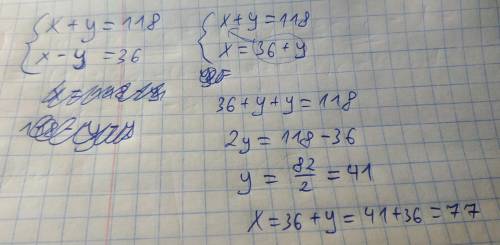 x + y = 118
x - y = 36
x + y = 118
x = 36 + y
36 + y + y = 118
2y = 118 - 36
y = 82/2 = 41
x = 36 + y = 41 + 36 = 77